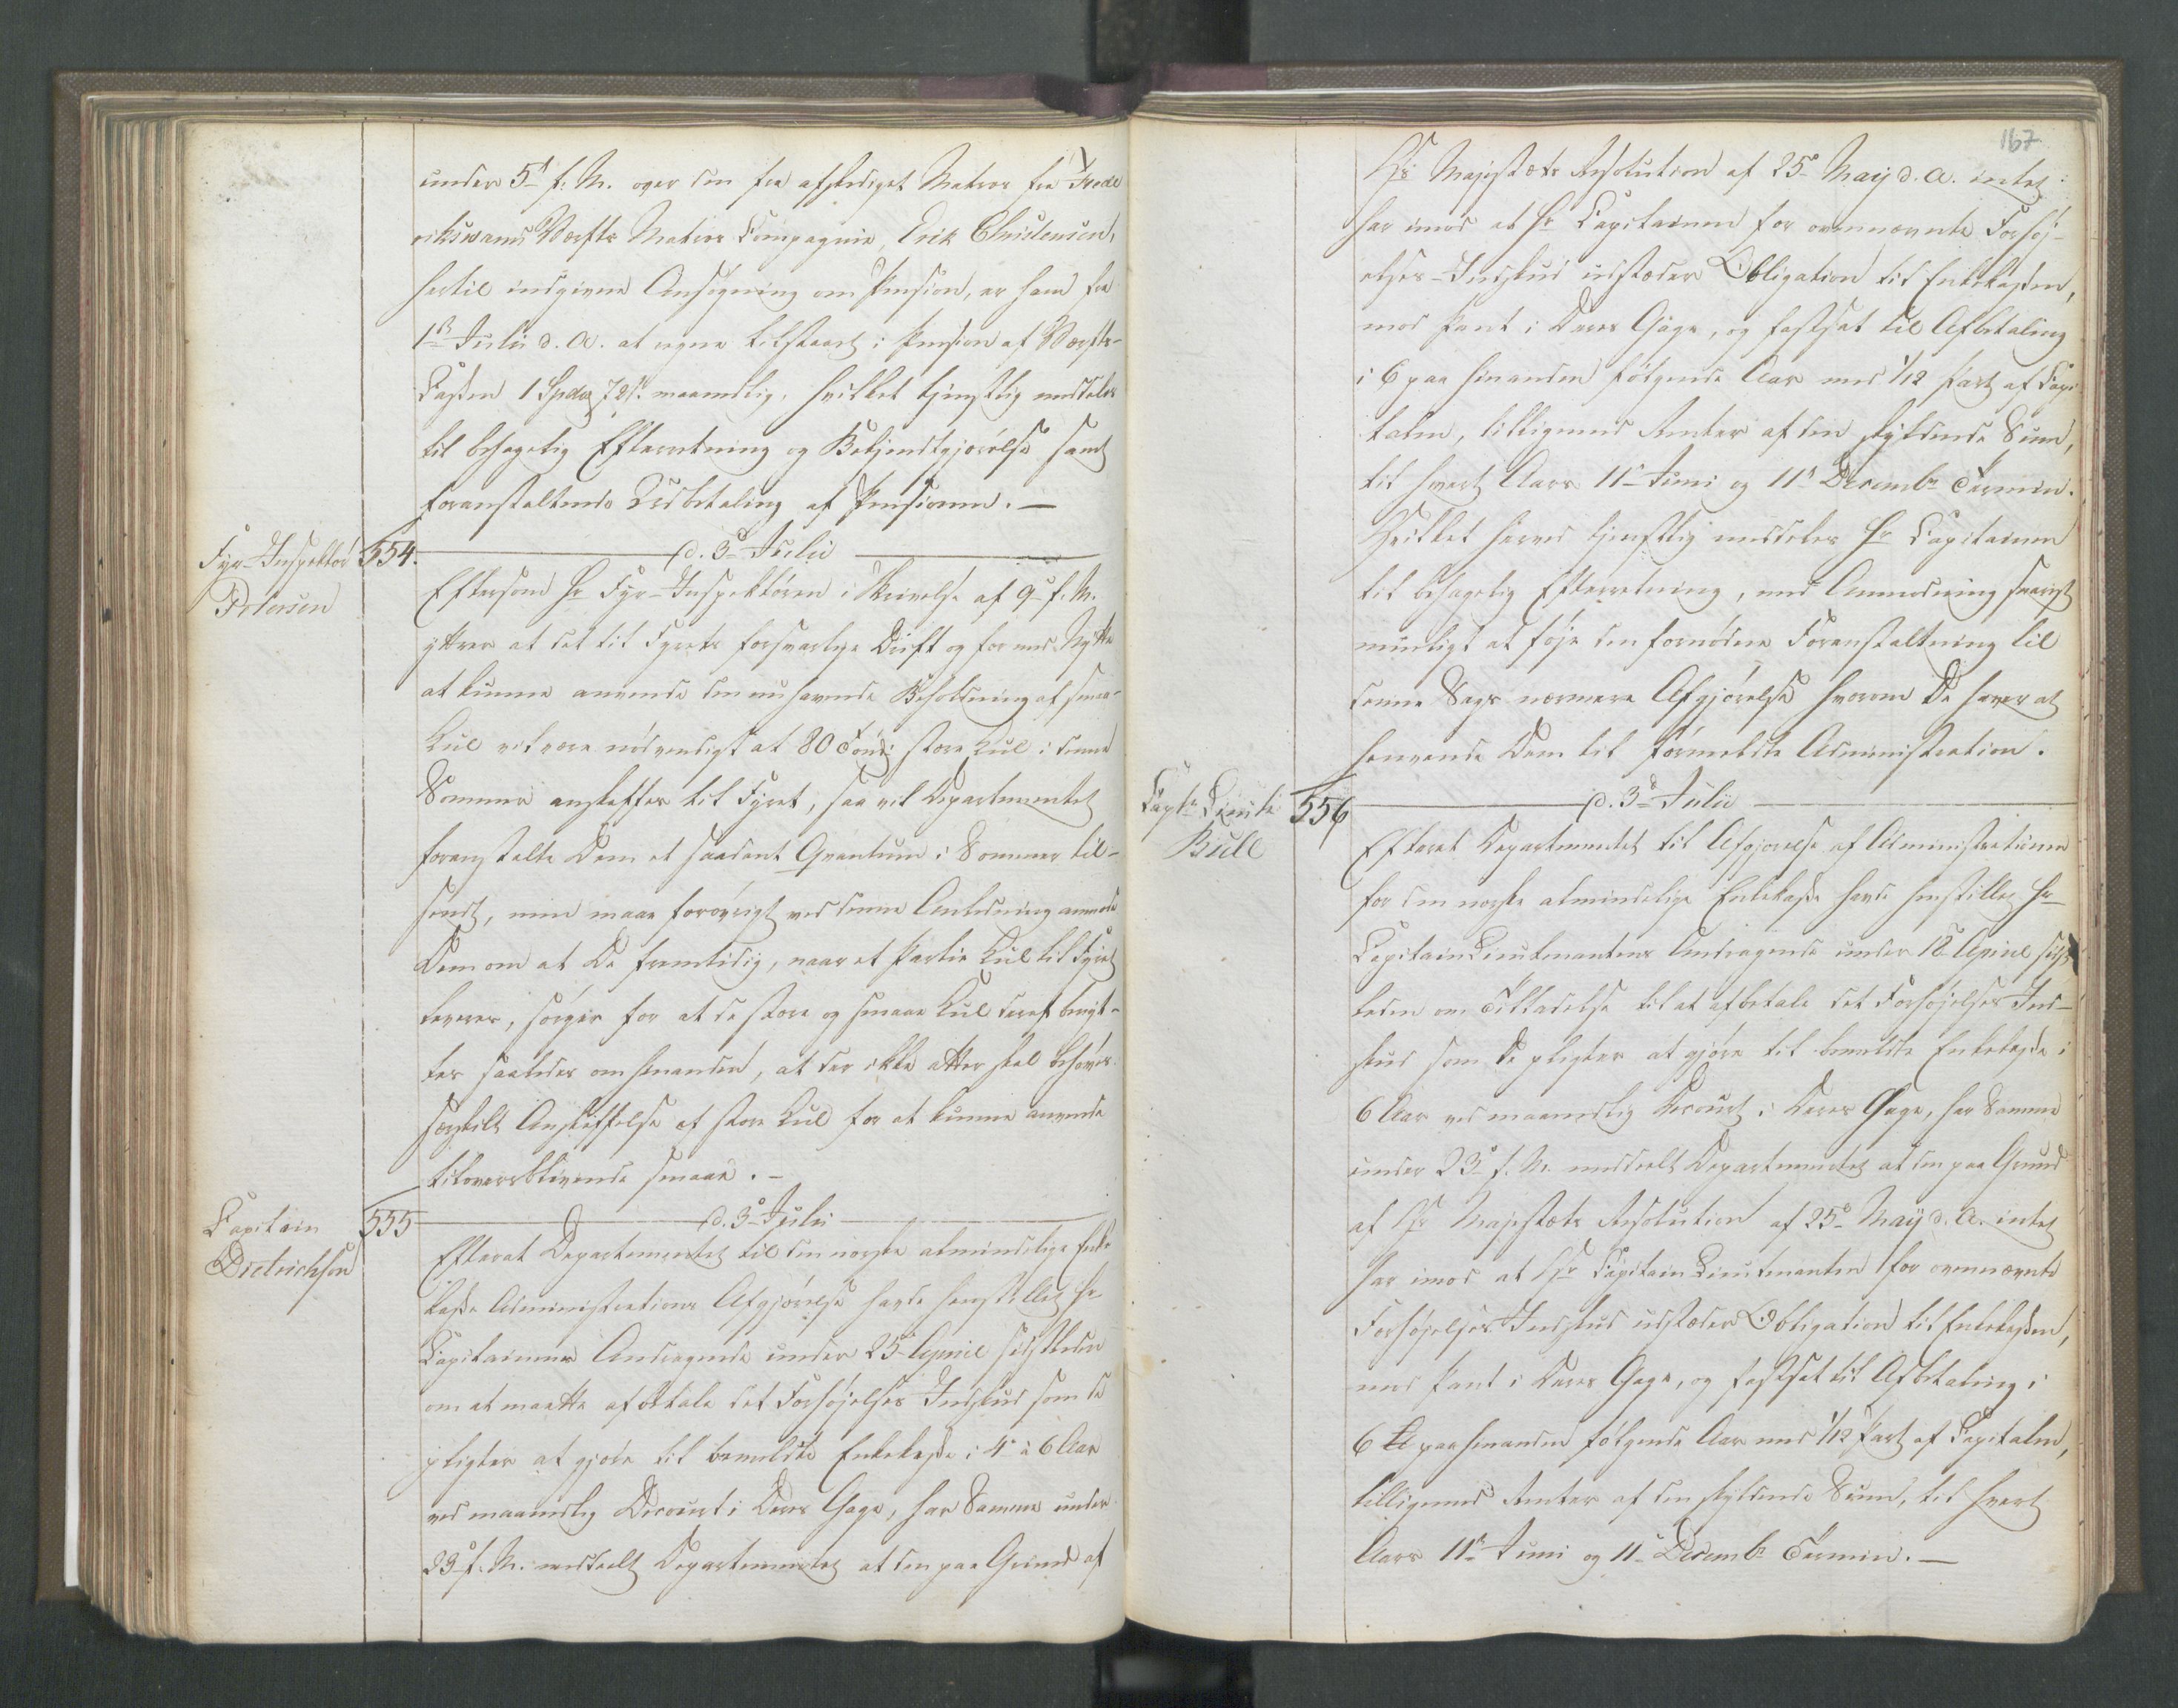 under 5te f: M. over den fra afskediget Matros fra Frede
riksværns Værfts Matros Compagnie, Erik Christensen,
hertil indgivne Ansøgning om Pension, er ham fra
1ste Julii d. A. at regne tilstaaet i Pension af Værfts-
Cassen 1 Spdlr 72 s. maanedlig, hvilket tjenstlig meddeles
til behagelig Efterretning og Bekjendtgjørelse samt
foranstaltende Udbetaling af Pensionen. —
Fyr-Inspektør
Petersen
554.
d. 3die Julii
Eftersom Hr Fyr-Inspektøren i Skrivelse af 9de f. M.
yttrer at det til Fyrets forsvarlige Drift og for med Nytte
at kunne anvende den nu havende Beholdning af smaa-
Kul vil være nødvendigt at 80 Tønder store Kul i denne
Sommer anskaffes til Fyret, saa vil Departementet
foranstalte Dem et saadant Qvantum i Sommer til-
sendt, men maae forøvrigt ved denne Anledning anmode
Dem om at De fremtidig, naar et Partie Kul til Fyret
leveres, sørger for at de store og smaae Kul deraf benyt-
tes saaledes om hinanden, at der ikke atter skal behøves
særskilt Anskaffelse af store Kul for at kunne anvende
tiloversblivende smaae. —
Capitain
Dietrichson
555
d. 3die Julii
Efterat Departementet til den norske almindelige Enke
kasse Administrations Afgjørelse havde henstillet Hr
Capitainens Andragende under 25de April sidstleden
om at maatte afbetale det Forhøjelses Indskud som De
pligter at gjøre til bemeldte Enkekasse i 4 à 6 Aar
ved maanedlig Decourt i Deres Gage, har Samme under
23de f. M. meddeelt Departementet at den paa Grund af
167
Hs Majestæts Resolution af 25de Maij d. A. intet
har imod at Hr Capitainen for ovennævnte Forhøj-
elses-Indskud udsteder Obligation til Enkekassen,
mod Pant i Deres Gage, og fastsat til Afbetaling
i 6 paa hinanden følgende Aar med 1/12 Part af Capi
talen, tilligemed Renter af den skyldende Sum,
til hvert Aars 11te Juni og 11te Decembr Termin.
Hvilket herved tjenstlig meddeles Hr Capitainen
til behagelig Efterretning, med Anmodning snarest
mueligt at føje den fornødne Foranstaltning til
denne Sags nærmere Afgjørelse hvorom De haver at
henvende Dem til formeldte Administration.
Captn Lieutn
Bull
556
d. 3die Julii
Efterat Departementet til Afgjørelse af Administrationen
for den norske almindelige Enkekasse havde henstillet Hr
Capitain Lieutenantens Andragende under 18de April sidst
leden om Tilladelse til at afbetale det Forhøjelses Ind-
skud som De pligter at gjøre til bemeldte Enkekasse i
6 Aar ved maanedlig Decourt i Deres Gage, har Samme
under 23de f. M. meddeelt Departementet at den paa Grund
af Hs Majestæts Resolution af 25de Maij d. A. intet
har imod at Hr Capitain Lieutenanten for ovennævnte
Forhøjelses Indskud udsteder Obligation til Enkekassen,
mod Pant i Deres Gage, og fastsat til Afbetaling i
6 paa hinanden følgende Aar med 1/12 Part af Capitalen,
tilligemed Renter af den skyldende Sum, til hvert
Aars 11te Juni og 11te Decembr Termin. —